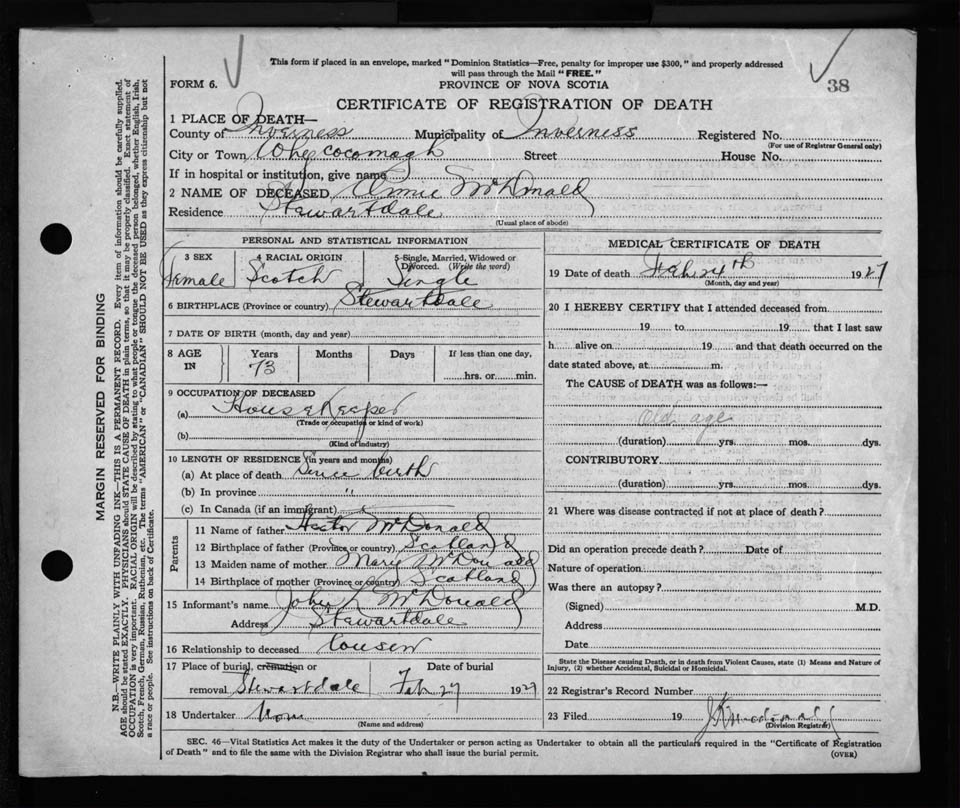 This form if placed in an envelope, marked "Dominion Statistics—Free, penalty for improper use $300," and properly addressed
will pass through the Mail "FREE."
FORM 6.
PROVINCE OF NOVA SCOTIA
38
CERTIFICATE OF REGISTRATION OF DEATH
1 PLACE OF DEATH—
County of Inverness Municipality of Inverness Registered No.
(For use of Registrar General only)
City or Town Whycocomagh Street House No.
If in hospital or institution, give name
2 NAME OF DECEASED Annie McDonald
Residence Stewartdale
(Usual place of abode)
PERSONAL AND STATISTICAL INFORMATION
3 SEX
Female
4 RACIAL ORIGIN
Scotch
5 Single, Married, Widowed or
Divorced. (Write the word)
Single
6 BIRTHPLACE (Province or country) Stewartdale
7 DATE OF BIRTH (month, day and year)
8 AGE
IN
Years
73
Months
Days
If less than one day,
hrs. or min.
9 OCCUPATION OF DECEASED
(a) Housekeeper
(Trade or occupation or kind of work)
(b)
(Kind of industry)
10 LENGTH OF RESIDENCE (in years and months)
(a) At place of death Since birth
(b) In province "
(c) In Canada (if an immigrant)
Parents
11 Name of father Hector McDonald
12 Birthplace of father (Province or country) Scotland
13 Maiden name of mother Marie McDonald
14 Birthplace of mother (Province or country) Scotland
15 Informant's name John McDonald
Address Stewartdale
16 Relationship to deceased Cousin
17 Place of burial, cremation or
removal Stewartdale
Date of burial
Feb 27 1927
18 Undertaker None
(Name and address)
MEDICAL CERTIFICATE OF DEATH
19 Date of death Feb 24th 1927
(Month, day and year)
20 I HEREBY CERTIFY that I attended deceased from
19 to 19 that I last saw
h alive on 19 and that death occurred on the
date stated above, at m.
The CAUSE of DEATH was as follows:—
Old age
(duration) yrs. mos. dys.
CONTRIBUTORY
(duration) yrs. mos. dys.
21 Where was disease contracted if not at place of death?
Did an operation precede death? Date of
Nature of operation
Was there an autopsy?
(Signed) M.D.
Address
Date
State the Disease causing Death, or in death from Violent Causes, state (1) Means and Nature of
Injury, (2) whether Accidental, Suicidal or Homicidal.
22 Registrar's Record Number
23 Filed 19
(Division Registrar)
SEC. 46—Vital Statistics Act makes it the duty of the Undertaker or person acting as Undertaker to obtain all the particulars required in the "Certificate of Registration
of Death" and to file the same with the Division Registrar who shall issue the burial permit.
(OVER)
MARGIN RESERVED FOR BINDING
N.B.—WRITE PLAINLY WITH UNFADING INK—THIS IS A PERMANENT RECORD. Every item of information should be carefully supplied.
AGE should be stated EXACTLY. PHYSICIANS should STATE CAUSE OF DEATH in plain terms, so that it may be properly classified. Exact statement of
OCCUPATION is very important. RACIAL ORIGIN will be described by stating to what people or tongue the deceased person belonged, whether English, Irish,
Scotch, French, German, Russian, Ruthenian, etc. The terms "AMERICAN" or "CANADIAN" SHOULD NOT BE USED as they express citizenship but not
a race or people. See instructions on back of Certificate.